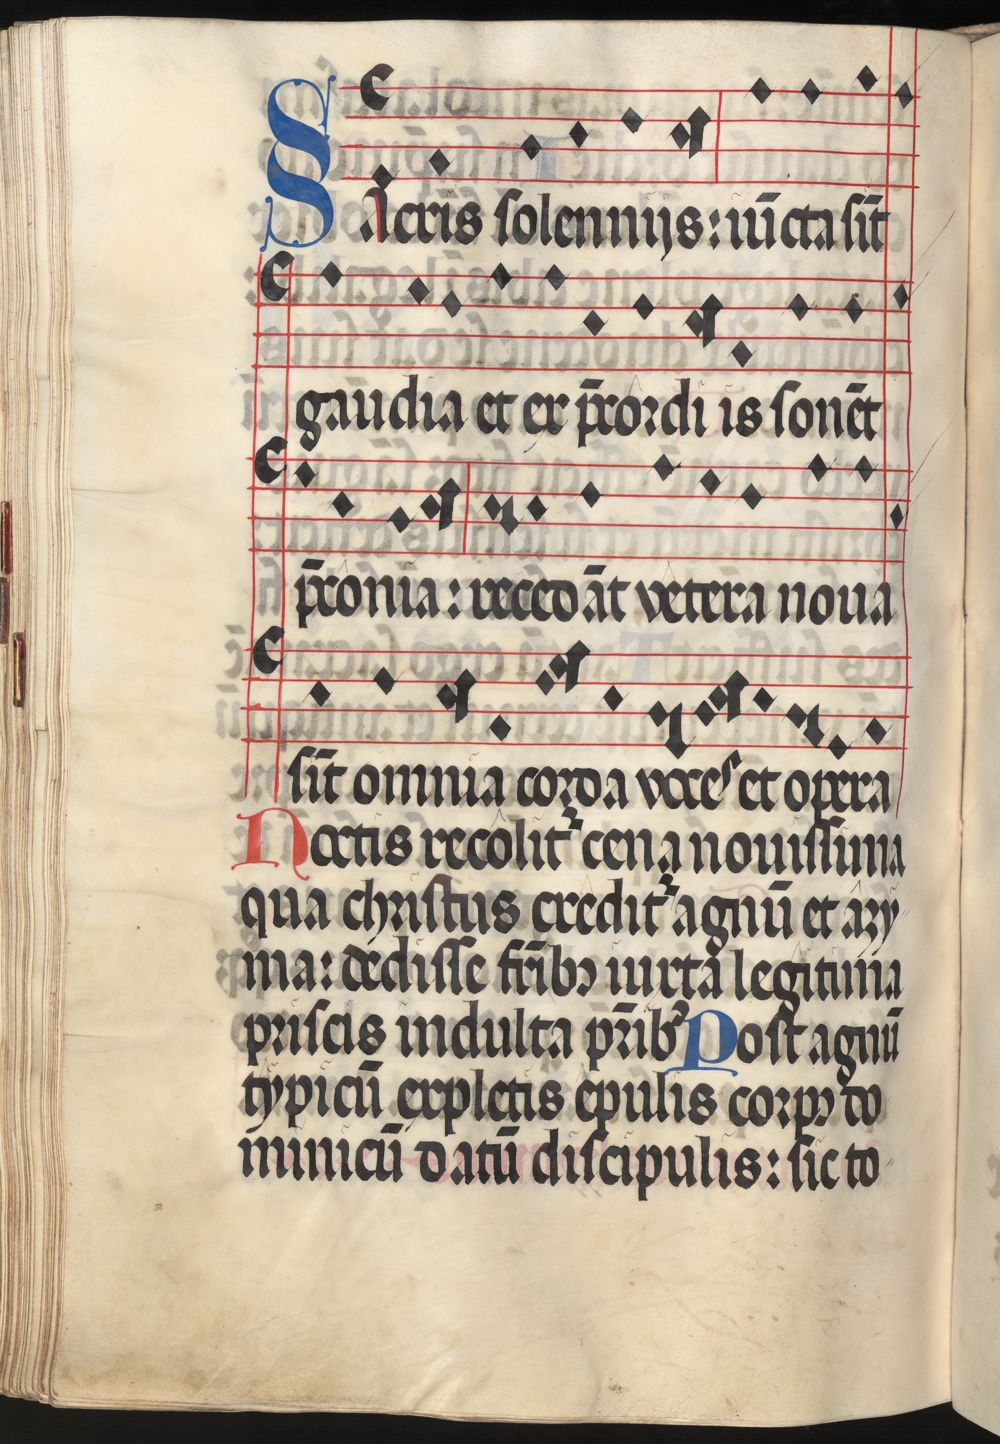 Sacris solenniis: iūcta sīt
gaudia et ex p̄cordi is sonēt
p̄conia: recedāt vetera noua
sīt omnia corda voces et opera
Noctis recolitꝛ cena nouissima
qua christus creditꝛ agnū et azy
ma: dedisse frībꝫ iuxta legitima
priscis indulta prībꝫ Post agnū
typicū expletis epulis corpꝫ do
minicū datū discipulis: sic to